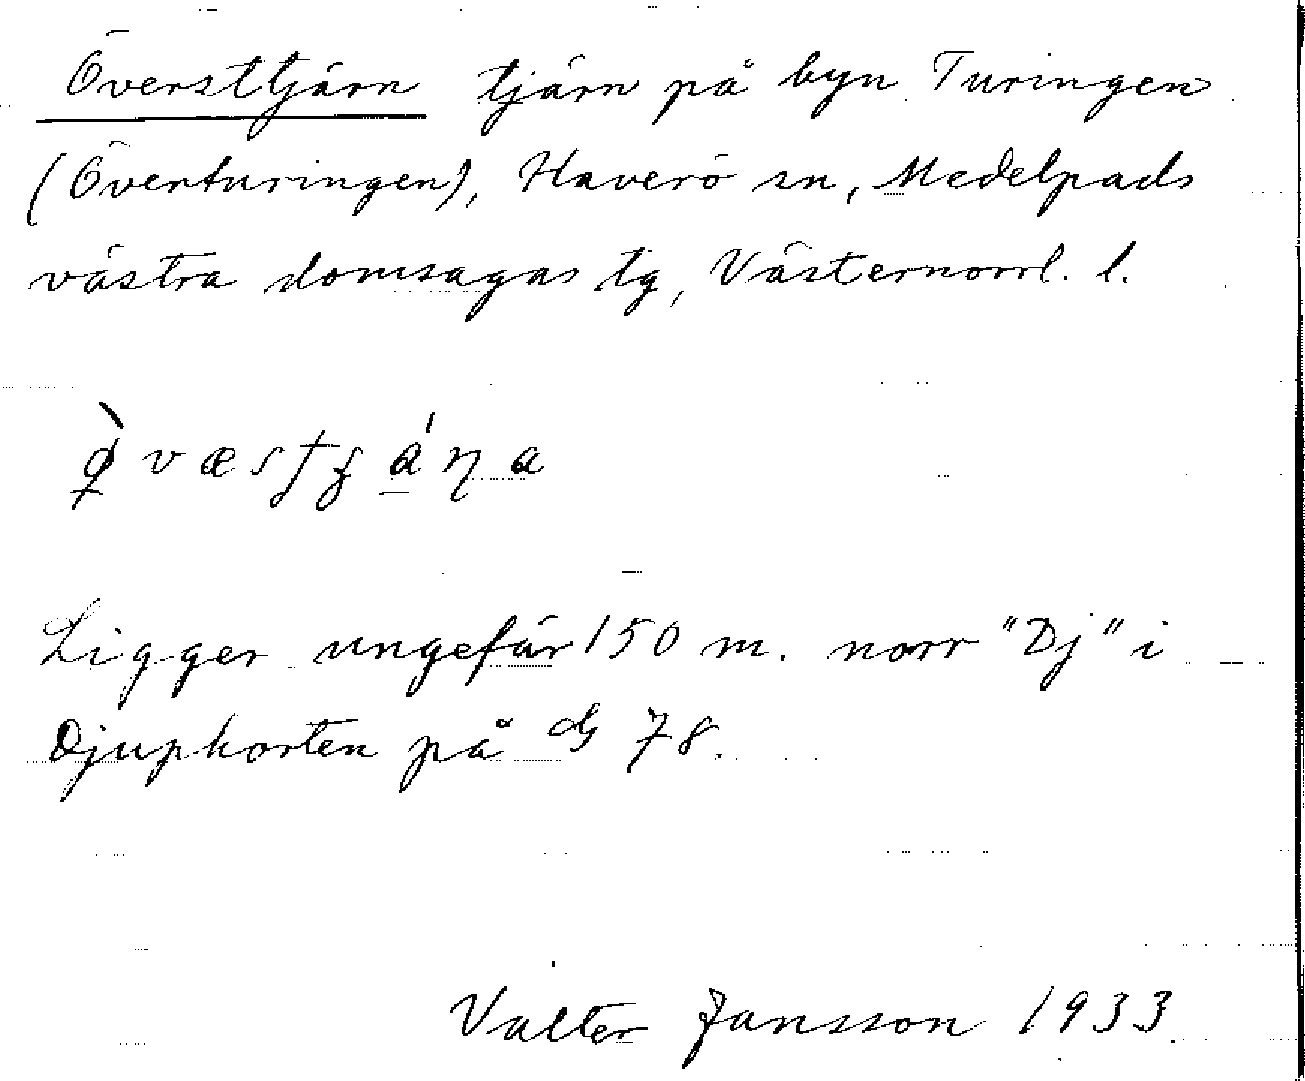 Översttjärn tjärn på byn Turingen
(Överturingen), Haverö sn, Medelpads
västra domsagas tg, Västernorrl. l.
Ligger ungefär 150 m. norr "Dj" i
Djuptjorten på 78.
Valter Jansson 1933